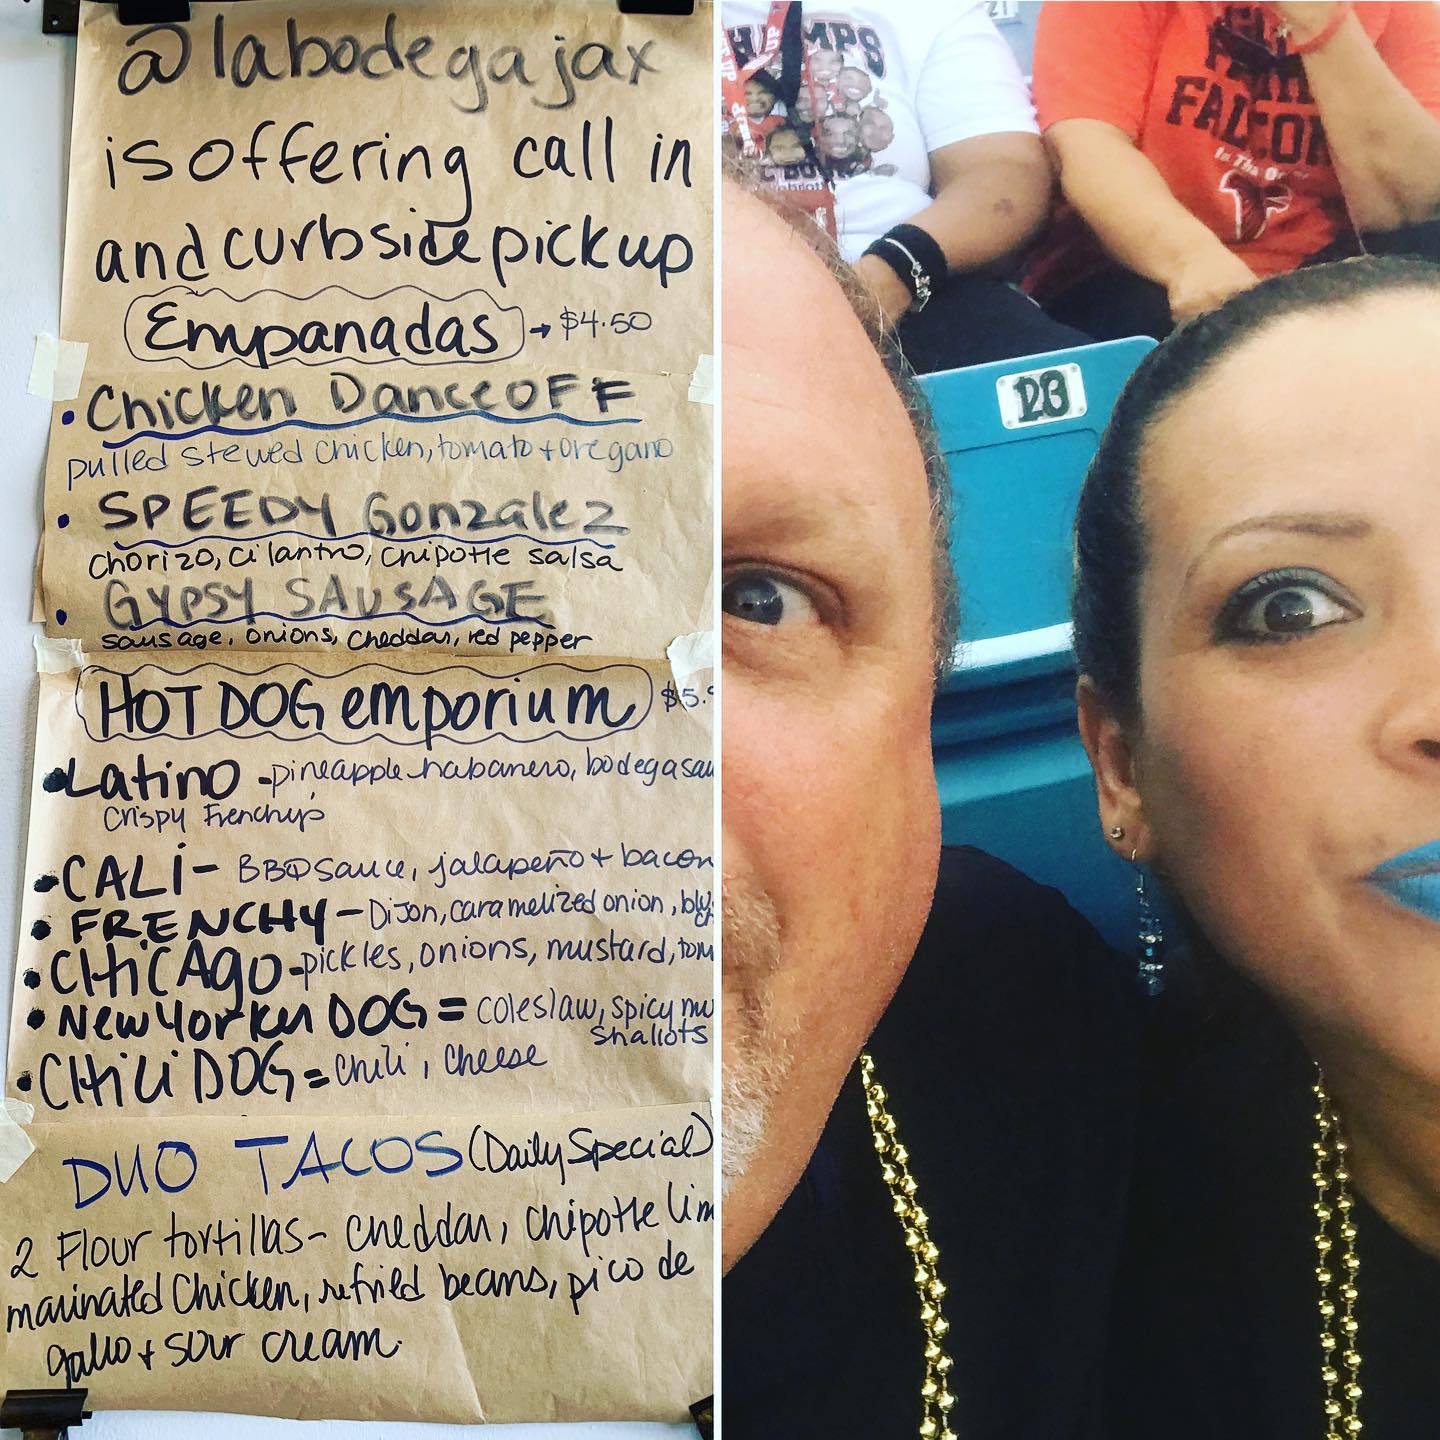 @labodegajax
is offering call in
and curbside pickup
Empanadas → $4.50
• Chicken Dance OFF
pulled stewed chicken, tomato + oregano
• SPEEDY Gonzalez
chorizo, cilantro, chipotle salsa
• GYPSY SAUSAGE
sausage, onions, cheddar, red pepper
HOT DOG emporium $5.
• Latino - pineapple habanero, bodega
Crispy Frenchys
• CALi - BBQ sauce, jalapeño + bacon
• FRENCHY - Dijon, caramelized onion,
• CHiCAgo - pickles, onions, mustard,
• New Yorker DOG = coleslaw, spicy
shallots
• CHiLi DOG = chili, cheese
DUO TACOS (Daily Special)
2 Flour tortillas - cheddar, chipotle
marinated Chicken, refried beans, pico de
gallo + sour cream.
21
FALCON
In The